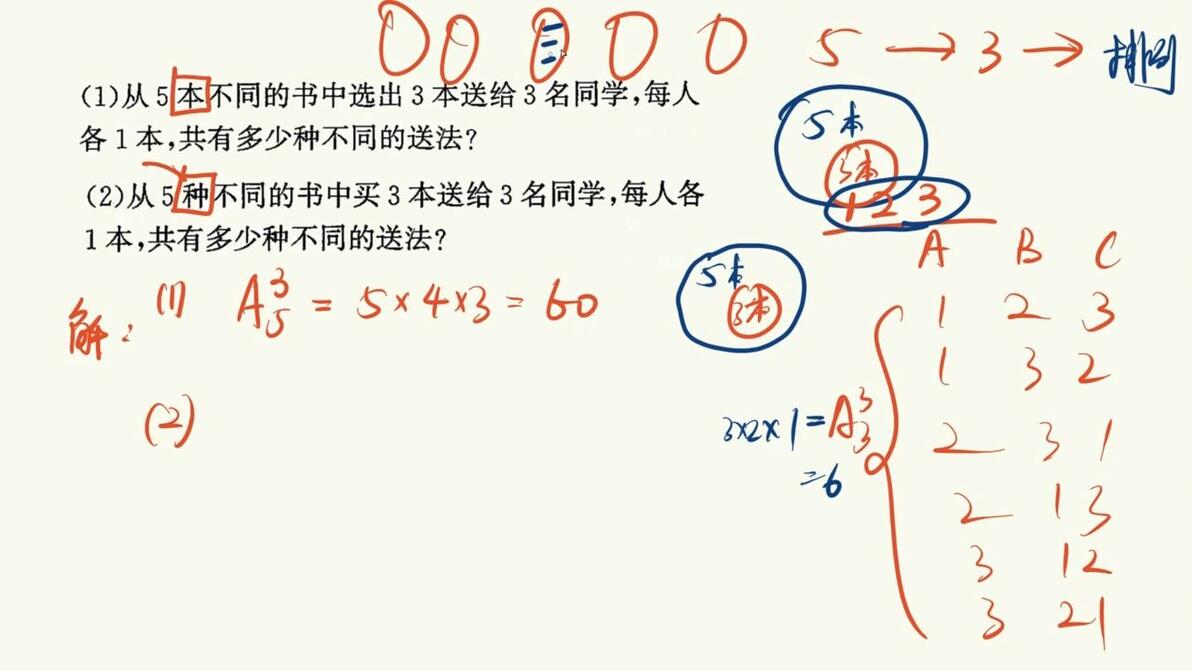 5 → 3 → 排列
(1)从5本不同的书中选出3本送给3名同学,每人
各1本,共有多少种不同的送法?
(2)从5种不同的书中买3本送给3名同学,每人各
1本,共有多少种不同的送法?
5本
3本
1 2 3
解:(1) A₅³ = 5×4×3 = 60
(2)
5本
3本
A B C
1 2 3
1 3 2
2 3 1
2 1 3
3 1 2
3 2 1
3×2×1 = A₃³
=6